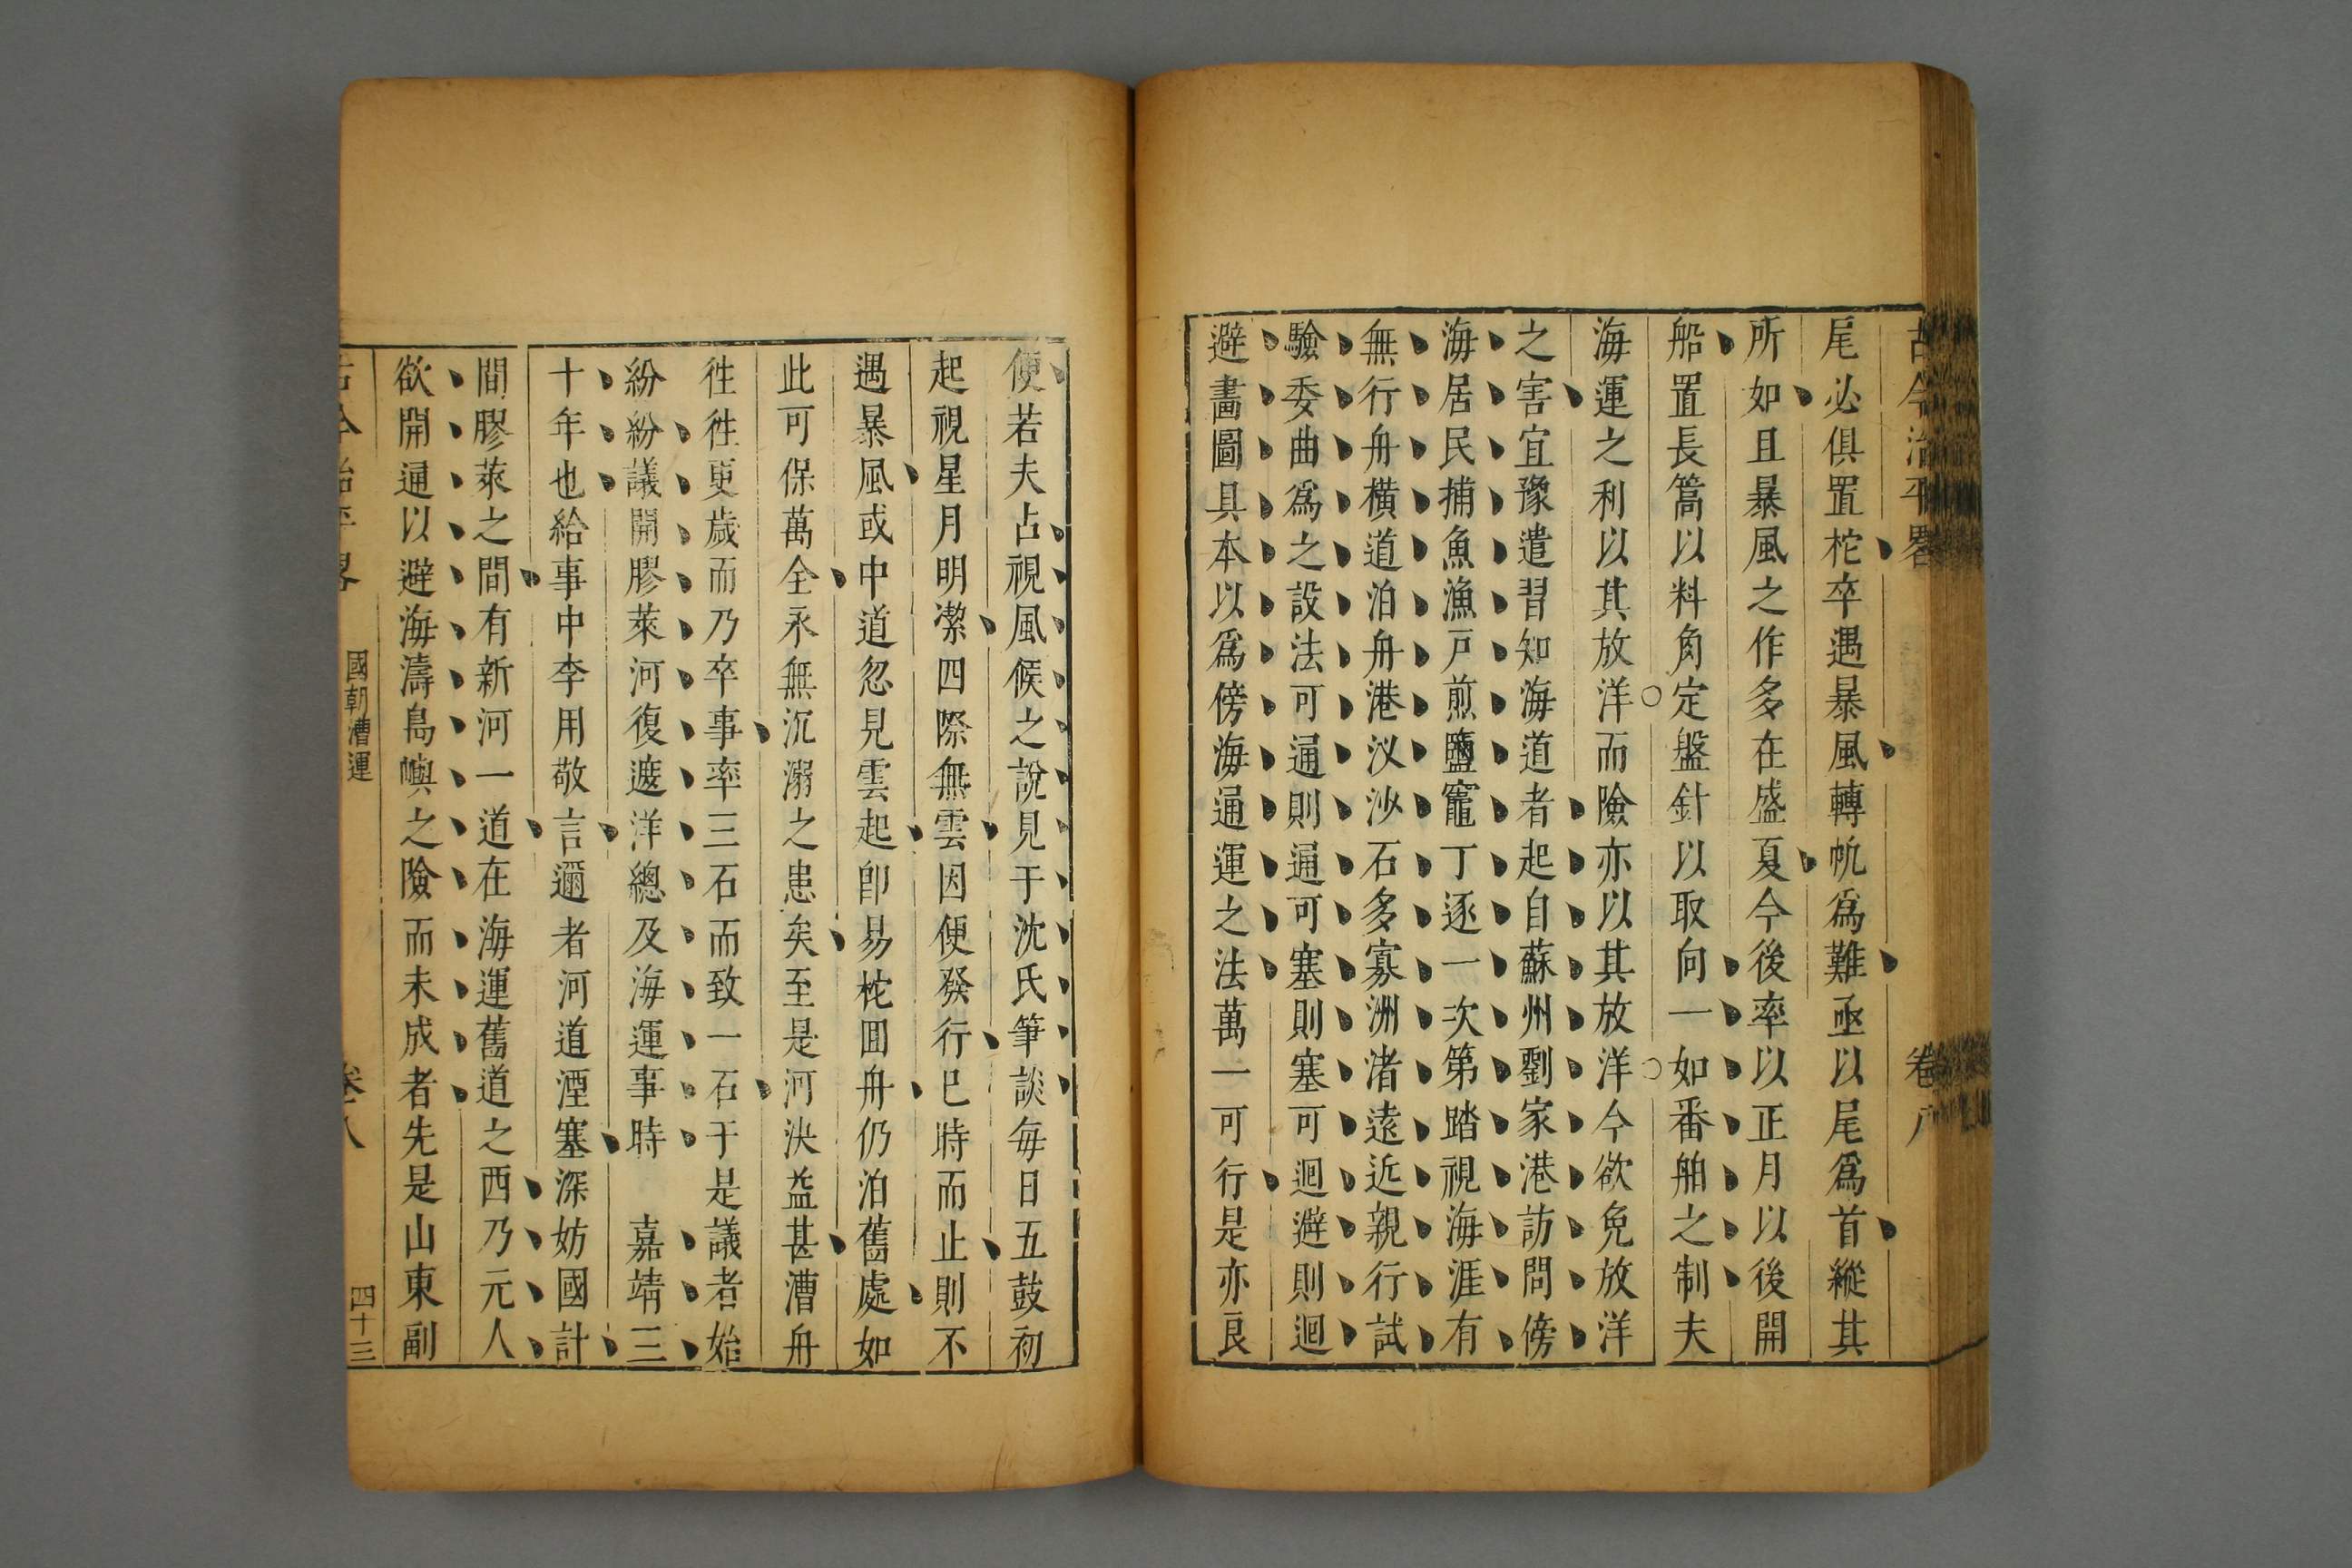 古今治平畧
卷八
尾必俱置柁卒遇暴風轉帆爲難亟以尾爲首縱其
所如且暴風之作多在盛夏今後率以正月以後開
船置長篙以料角定盤針以取向一如番舶之制夫
海運之利以其放洋而險亦以其放洋今欲免放洋
之害宜豫遣習知海道者起自蘇州劉家港訪問傍
海居民捕魚漁戸煎鹽竈丁逐一次第踏視海涯有
無行舟橫道泊舟港汊沙石多寡洲渚遠近親行試
驗委曲爲之設法可通則通可塞則塞可迴避則迴
避畵圖具本以爲傍海通運之法萬一可行是亦良
便若夫占視風候之說見于沈氏筆談每日五鼓初
起視星月明潔四際無雲因便發行巳時而止則不
遇暴風或中道忽見雲起卽易柁囬舟仍泊舊處如
此可保萬全永無沉溺之患矣至是河決益甚漕舟
徃徃更歲而乃卒事率三石而致一石于是議者始
紛紛議開膠萊河復遮洋總及海運事時 嘉靖三
十年也給事中李用敬言邇者河道湮塞深妨國計
間膠萊之間有新河一道在海運舊道之西乃元人
欲開通以避海濤島嶼之險而未成者先是山東副
古今治平畧
國朝漕運
卷八
四十三